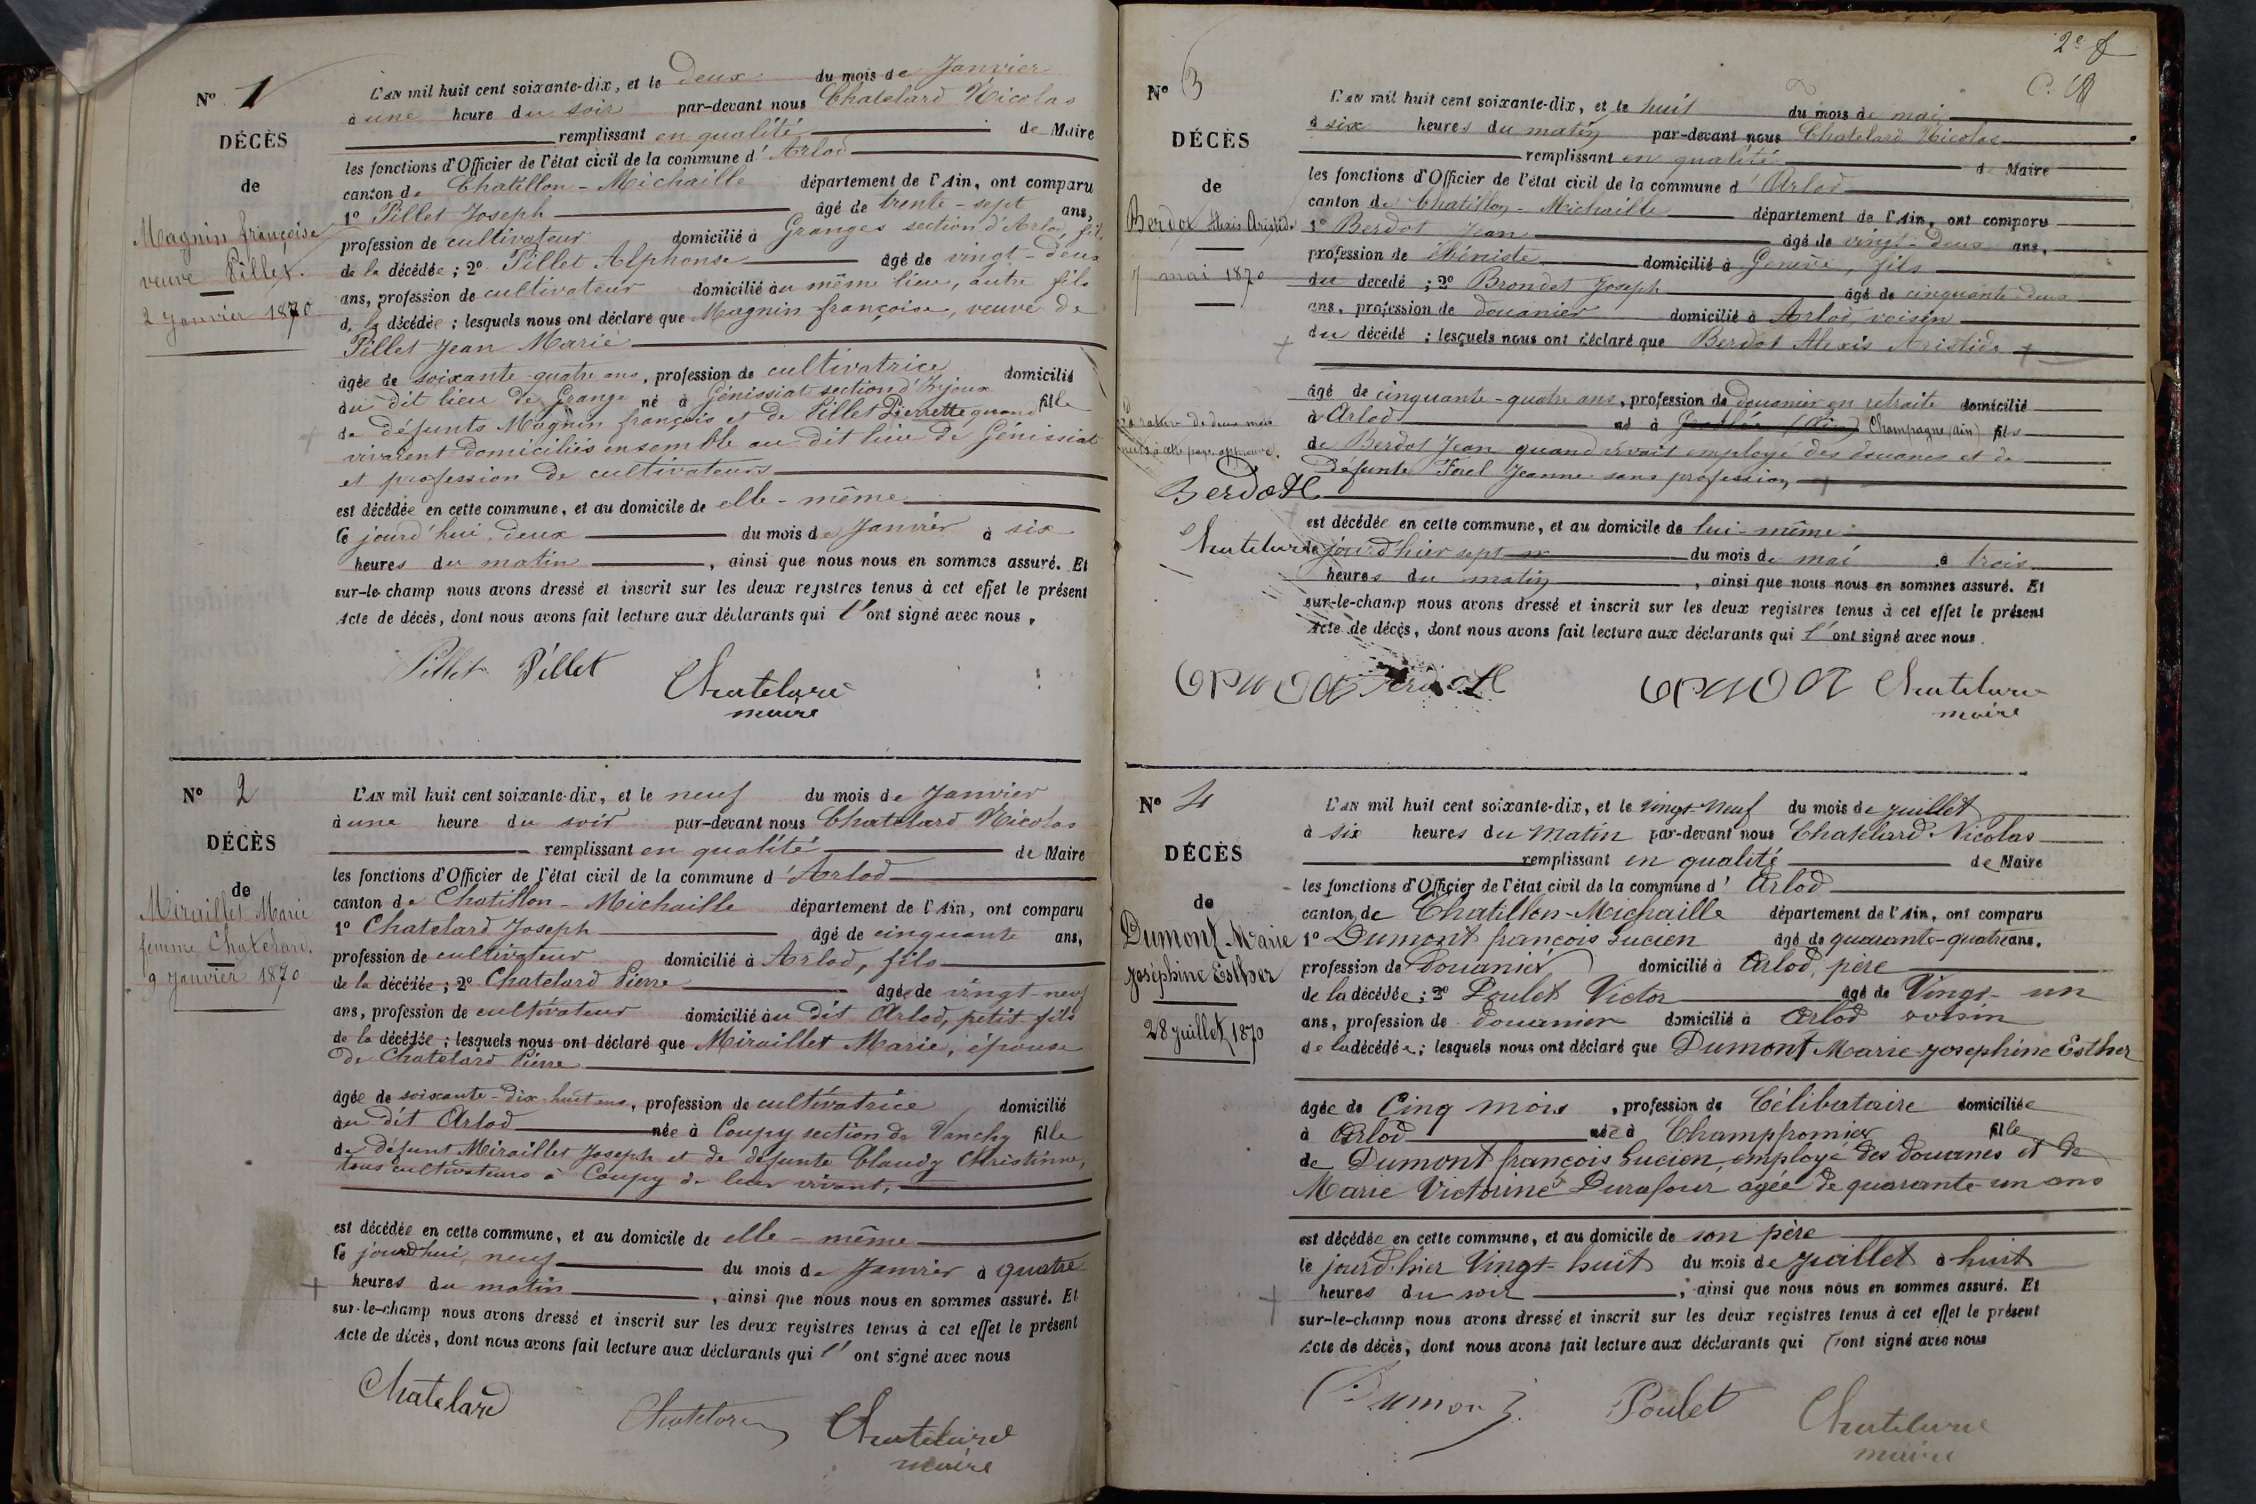 N° 1
DÉCÈS
de
Magnin françoise
veuve Pillet.
2 Janvier 1870
L'AN mil huit cent soixante-dix, et le deux du mois de Janvier
à une heure du soir par-devant nous Chatelard Nicolas
remplissant en qualité de Maire
les fonctions d'Officier de l'état civil de la commune d'Arlod
canton de Chatillon-Michaille département de l'Ain, ont comparu
1° Pillet Joseph âgé de trente-sept ans,
profession de cultivateur domicilié à Granges section d'Arlod, fils
de la décédée ; 2° Pillet Alphonse âgé de vingt-deux
ans, profession de cultivateur domicilié au même lieu, autre fils
de la décédée ; lesquels nous ont déclaré que Magnin françoise, veuve de
Pillet Jean Marie
âgée de soixante-quatre ans, profession de cultivatrice domicilié
au dit lieu de Grange né à Génissiat section d'Injoux fille
de défunts Magnin françois et de Pillet Pierrette quand
vivaient domiciliés ensemble au dit lieu de Génissiat
et profession de cultivateurs
est décédée en cette commune, et au domicile de elle-même
le jourd'hui deux du mois de Janvier à six
heures du matin, ainsi que nous nous en sommes assuré. Et
sur-le-champ nous avons dressé et inscrit sur les deux registres tenus à cet effet le présent
Acte de décès, dont nous avons fait lecture aux déclarants qui l'ont signé avec nous.
Pillet Pillet Chatelard
maire
N° 2
DÉCÈS
de
Miraillet Marie
femme Chatelard.
9 Janvier 1870
L'AN mil huit cent soixante-dix, et le neuf du mois de Janvier
à une heure du soir par-devant nous Chatelard Nicolas
remplissant en qualité de Maire
les fonctions d'Officier de l'état civil de la commune d'Arlod
canton de Chatillon-Michaille département de l'Ain, ont comparu
1° Chatelard Joseph âgé de cinquante ans,
profession de cultivateur domicilié à Arlod, fils
de la décédée ; 2° Chatelard Pierre âgé de vingt-neuf
ans, profession de cultivateur domicilié au dit Arlod, petit fils
de la décédée ; lesquels nous ont déclaré que Miraillet Marie, épouse
de Chatelard Pierre
âgée de soixante-dix-huit ans, profession de cultivatrice domicilié
au dit Arlod née à Coupy section de Vanchy fille
de défunt Miraillet Joseph et de défunte Claudy Christinne,
tous cultivateurs à Coupy de leur vivant,
est décédée en cette commune, et au domicile de elle-même
le jourd'hui neuf du mois de Janvier à quatre
heures du matin, ainsi que nous nous en sommes assuré. Et
sur-le-champ nous avons dressé et inscrit sur les deux registres tenus à cet effet le présent
Acte de décès, dont nous avons fait lecture aux déclarants qui l'ont signé avec nous
Chatelard Chatelard Chatelard
maire
2e f
N° 3
DÉCÈS
de
Berdot Alexis Aristide
7 mai 1870
L'AN mil huit cent soixante-dix, et le huit du mois de mai
à six heures du matin par-devant nous Chatelard Nicolas
remplissant en qualité de Maire
les fonctions d'Officier de l'état civil de la commune d'Arlod
canton de Chatillon-Michaille département de l'Ain, ont comparu
1° Berdot Jean âgé de vingt-deux ans,
profession de ébéniste domicilié à Genève, fils
du décédé ; 2° Brondet Joseph âgé de cinquante-deux
ans, profession de douanier domicilié à Arlod, voisin
du décédé ; lesquels nous ont déclaré que Berdot Alexis Aristide
âgé de cinquante-quatre ans, profession de Douanier en retraite domicilié
à Arlod né à Champagne (Ain) fils
de Berdot Jean quand vivait employé des douanes et de
défunte Forel Jeanne sans profession
Berdot
Chatelard
est décédée en cette commune, et au domicile de lui-même
le jourd'hier sept du mois de mai à trois
heures du matin, ainsi que nous nous en sommes assuré. Et
sur-le-champ nous avons dressé et inscrit sur les deux registres tenus à cet effet le présent
Acte de décès, dont nous avons fait lecture aux déclarants qui l'ont signé avec nous.
Chatelard
maire
N° 4
DÉCÈS
de
Dumont Marie
Joséphine Esther
28 juillet 1870
L'AN mil huit cent soixante-dix, et le vingt-neuf du mois de juillet
à six heures du matin par-devant nous Chatelard Nicolas
remplissant en qualité de Maire
les fonctions d'Officier de l'état civil de la commune d'Arlod
canton de Chatillon-Michaille département de l'Ain, ont comparu
1° Dumont françois Lucien âgé de quarante-quatre ans,
profession de Douanier domicilié à Arlod, père
de la décédée ; 2° Poulet Victor âgé de Vingt-un
ans, profession de douanier domicilié à Arlod voisin
de la décédée ; lesquels nous ont déclaré que Dumont Marie-Josephine Esther
âgée de Cinq mois, profession de Célibataire domiciliée
à Arlod née à Champfromier fille
de Dumont françois Lucien, employé des douanes et de
Marie Victorine Durafour âgée de quarante-un ans
est décédée en cette commune, et au domicile de son père
le jourd'hier Vingt-huit du mois de juillet à huit
heures du soir, ainsi que nous nous en sommes assuré. Et
sur-le-champ nous avons dressé et inscrit sur les deux registres tenus à cet effet le présent
Acte de décès, dont nous avons fait lecture aux déclarants qui l'ont signé avec nous
Dumont Poulet Chatelard
maire